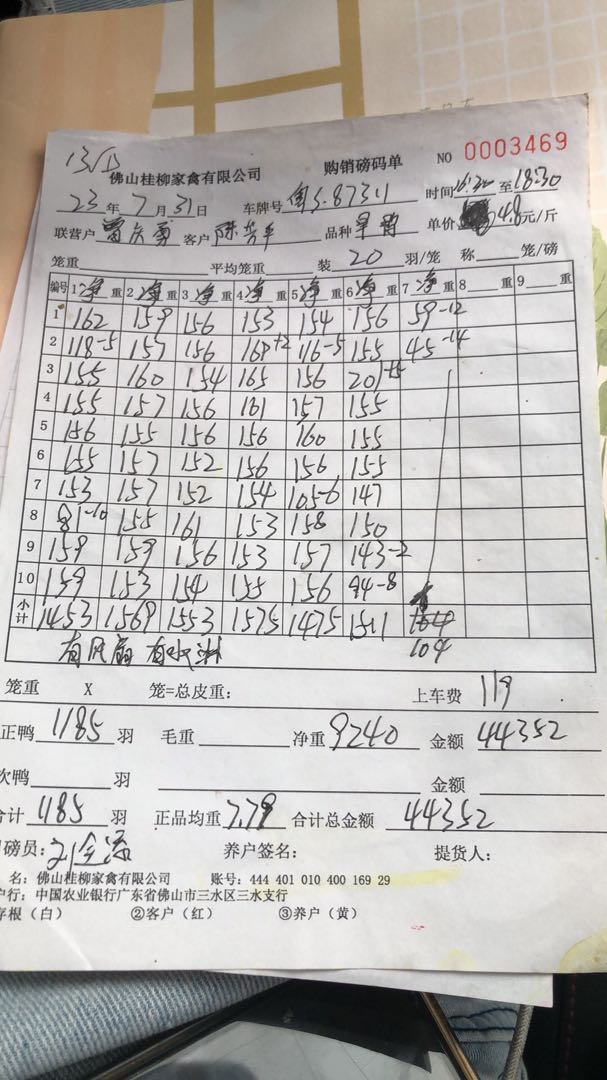 13/15
佛山桂柳家禽有限公司 购销磅码单 NO 0003469
23年7月31日 车牌号 8731 时间16:30至18:30
联营户 客户 陈 品种 单价 4.8元/斤
笼重 平均笼重 装20羽/笼 称 笼/磅
编号 1净重 2净重 3净重 4净重 5净重 6净重 7净重 8 重 9 重
1 162 159 156 153 154 156 59-12
2 118-5 157 156 168+2 116-5 155 45-14
3 155 160 154 165 156 201+5
4 155 157 156 161 157 155
5 156 155 156 156 160 155
6 155 157 152 156 156 155
7 153 157 152 154 105-6 147
8 81-10 155 161 153 158 150
9 159 159 156 153 157 143-2
10 159 153 154 155 156 94-8
小计 1453 1569 1553 1575 1475 1511 104
104
有风扇 有水淋
笼重 X 笼=总皮重: 上车费 119
正鸭 1185 羽 毛重 净重 9240 金额 44352
次鸭 羽 金额
合计 1185 羽 正品均重 7.79 合计总金额 44352
磅员: 养户签名: 提货人:
名: 佛山桂柳家禽有限公司 账号: 444 401 010 400 169 29
户行: 中国农业银行广东省佛山市三水区三水支行
存根(白) ②客户(红) ③养户(黄)